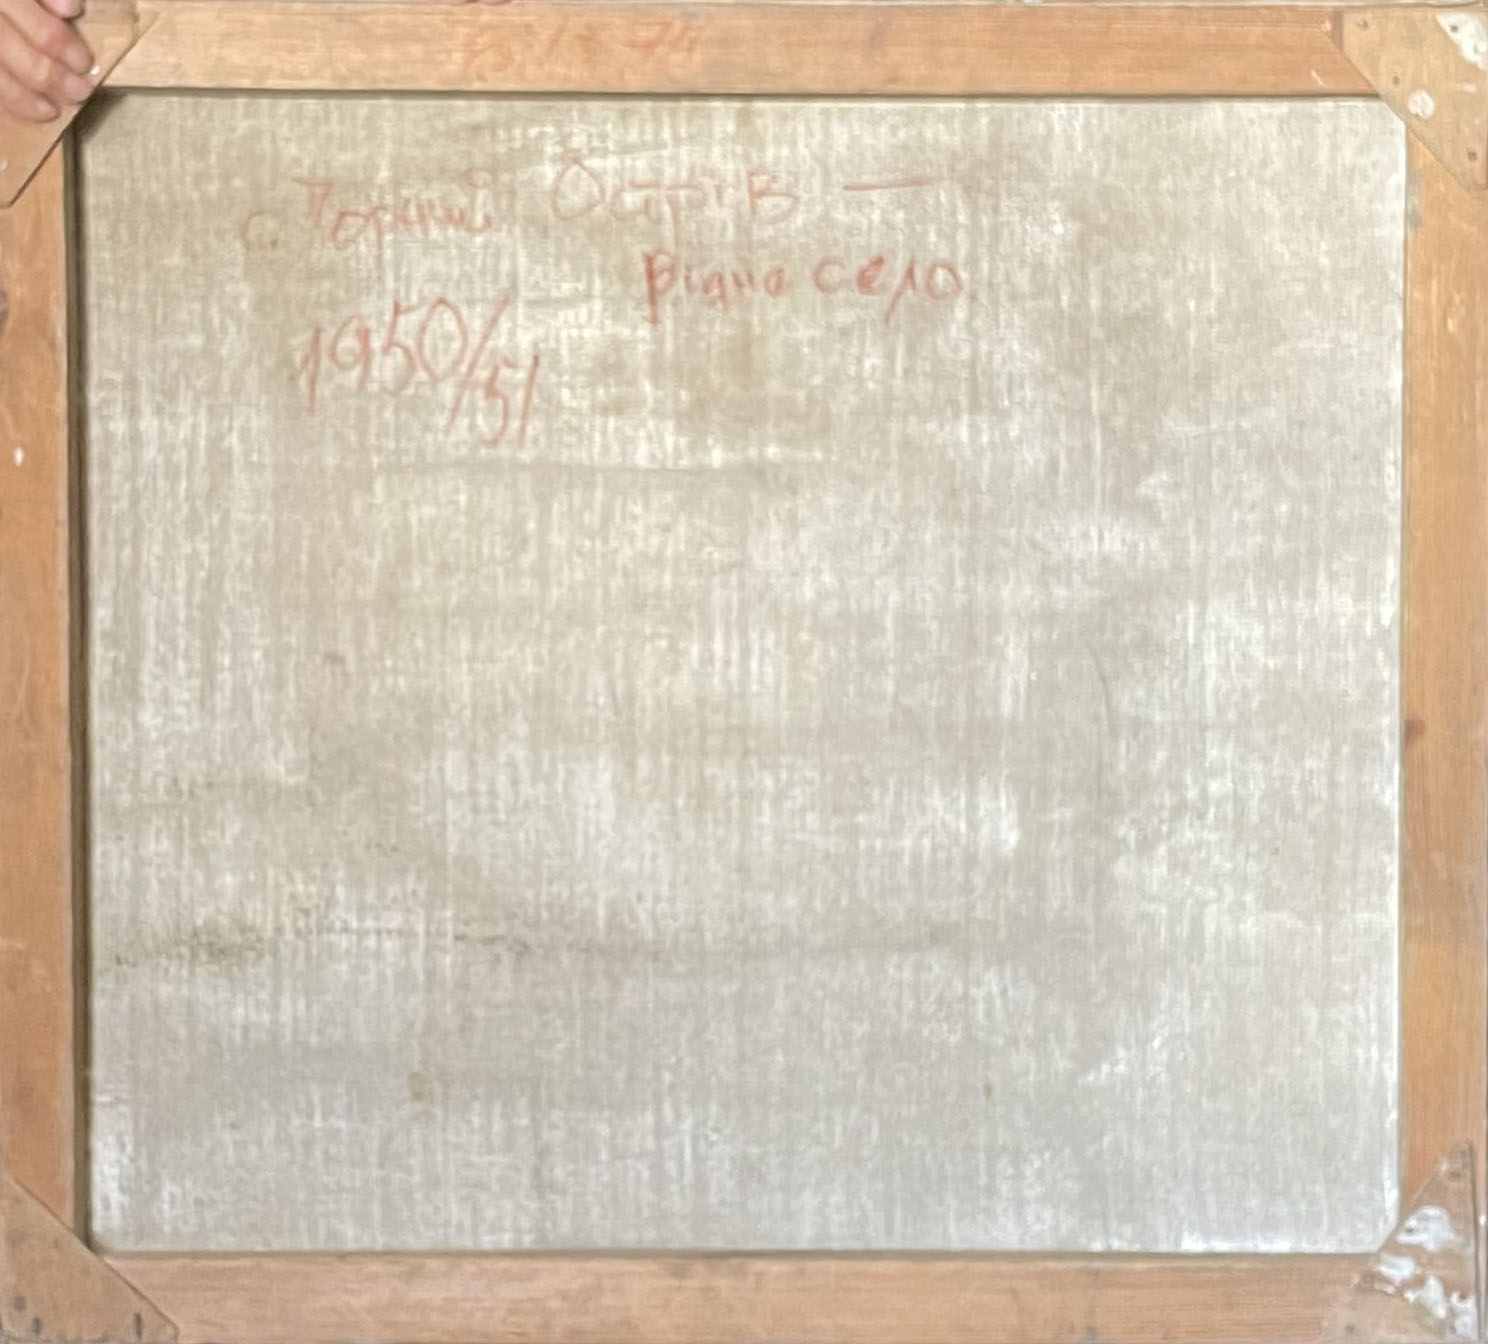 с. Чорний Острів —
рідне село.
1950/51